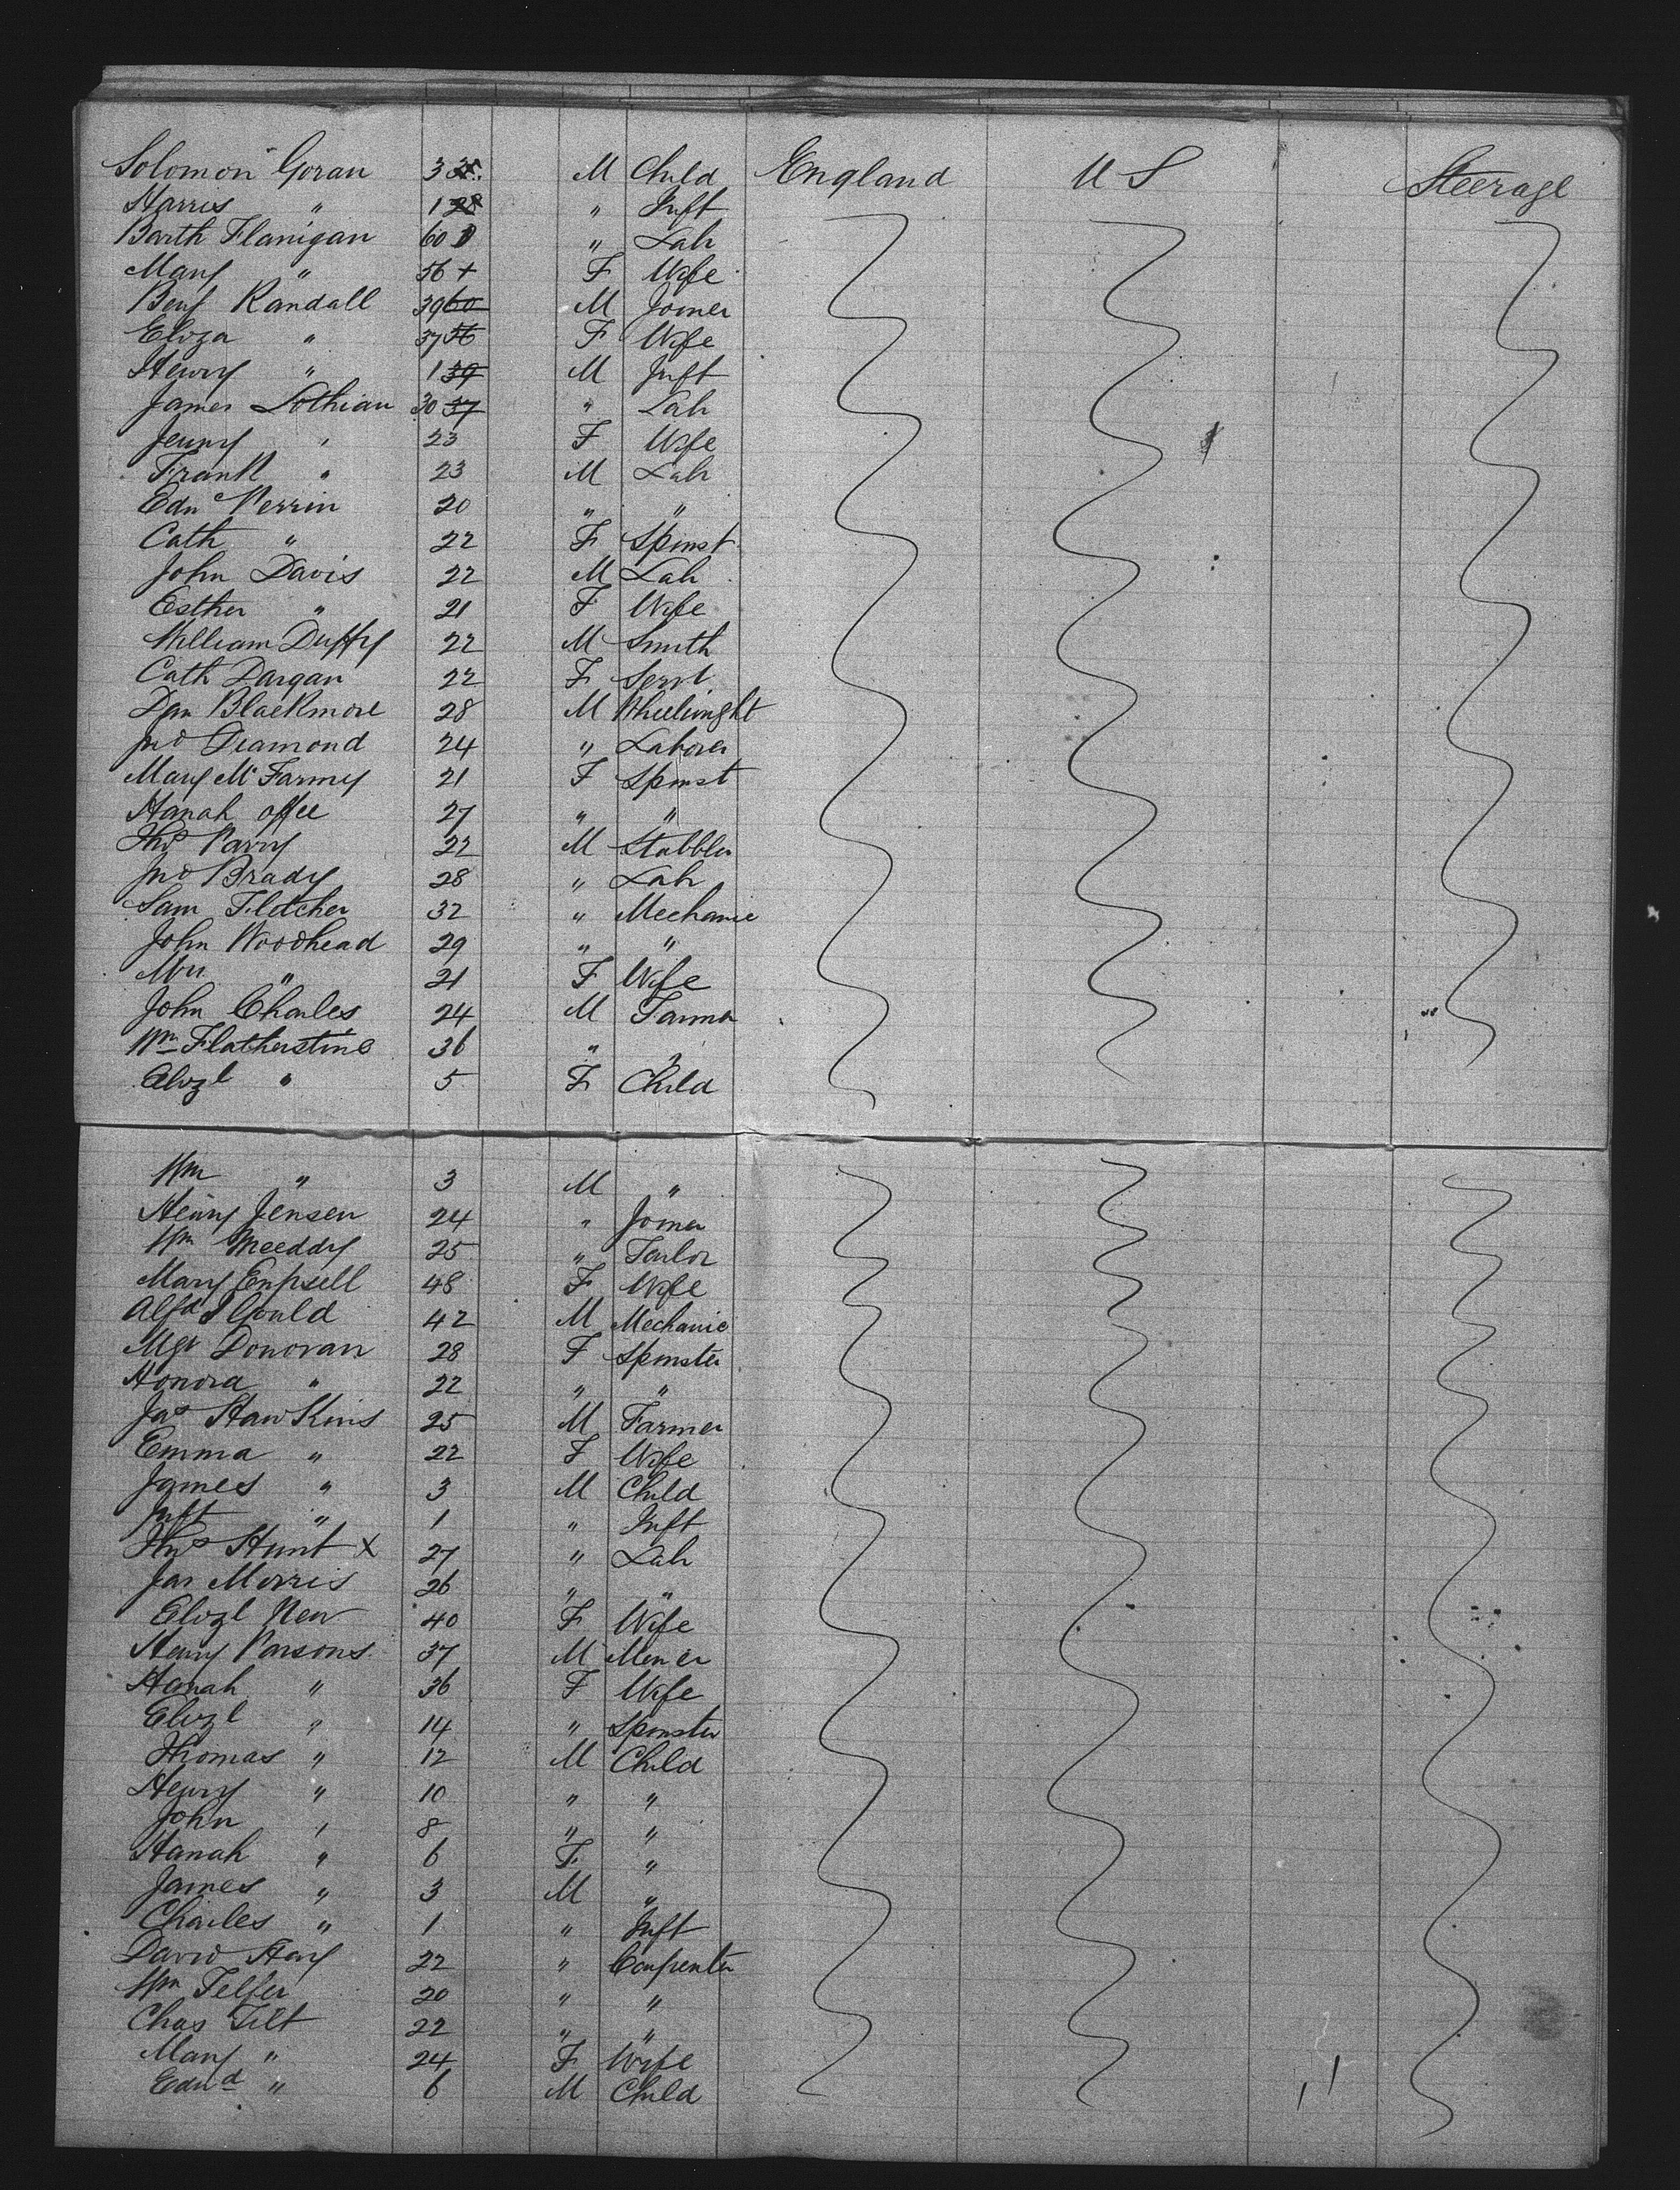 Solomon Goran 3 M Child England U S Steerage
Harris " 1 28 " Inft
Barth Flanigan 60 " Lab
Mary " 56 + F Wife
Benj Randall 39 60 M Joiner
Eliza " 37 56 F Wife
Henry " 1 39 M Inft
James Lothian 30 37 " Lab
Jenny " 23 F Wife
Frank " 23 M Lab
Edn Perrin 20 " "
Cath " 22 F Spinst
John Davis 22 M Lab
Esther " 21 F Wife
William Duffy 22 M Smith
Cath Dargan 22 F Servt
Dan Blackmore 28 M Wheelwright
Jno Diamond 24 " Laborer
Mary Mc Farmy 21 F Spinst
Hanah offee 27 " "
Thos Parry 22 M Stabbler
Jno Brady 28 " Lab
Sam Fletcher 32 " Mechanic
John Woodhead 29 " "
Mrs " 21 F Wife
John Charles 24 M Farmer
Wm Flatherstine 36 " "
Elizt " 5 F Child
Wm " 3 M "
Henry Jensen 24 " Joiner
Wm Meeddy 25 " Tailor
Mary Enpsell 48 F Wife
Alfd J Gould 42 M Mechanic
Mgt Donovan 28 F Spinster
Honora " 22 " "
Jas Hawkins 25 M Farmer
Emma " 22 F Wife
James " 3 M Child
Inft " 1 " Inft
Thos Hunt X 27 " Lab
Jas Morris 26 " "
Elizt New 40 F Wife
Henry Parsons 37 M Miner
Hanah " 36 F Wife
Elizt " 14 " Spinster
Thomas " 12 M Child
Henry " 10 " "
John " 8 " "
Hanah " 6 F "
James " 3 M "
Charles " 1 " Inft
David Hay 22 " Carpenter
Wm Telfer 20 " "
Chas Tilt 22 " "
Mary " 24 F Wife
Edwd " 6 M Child